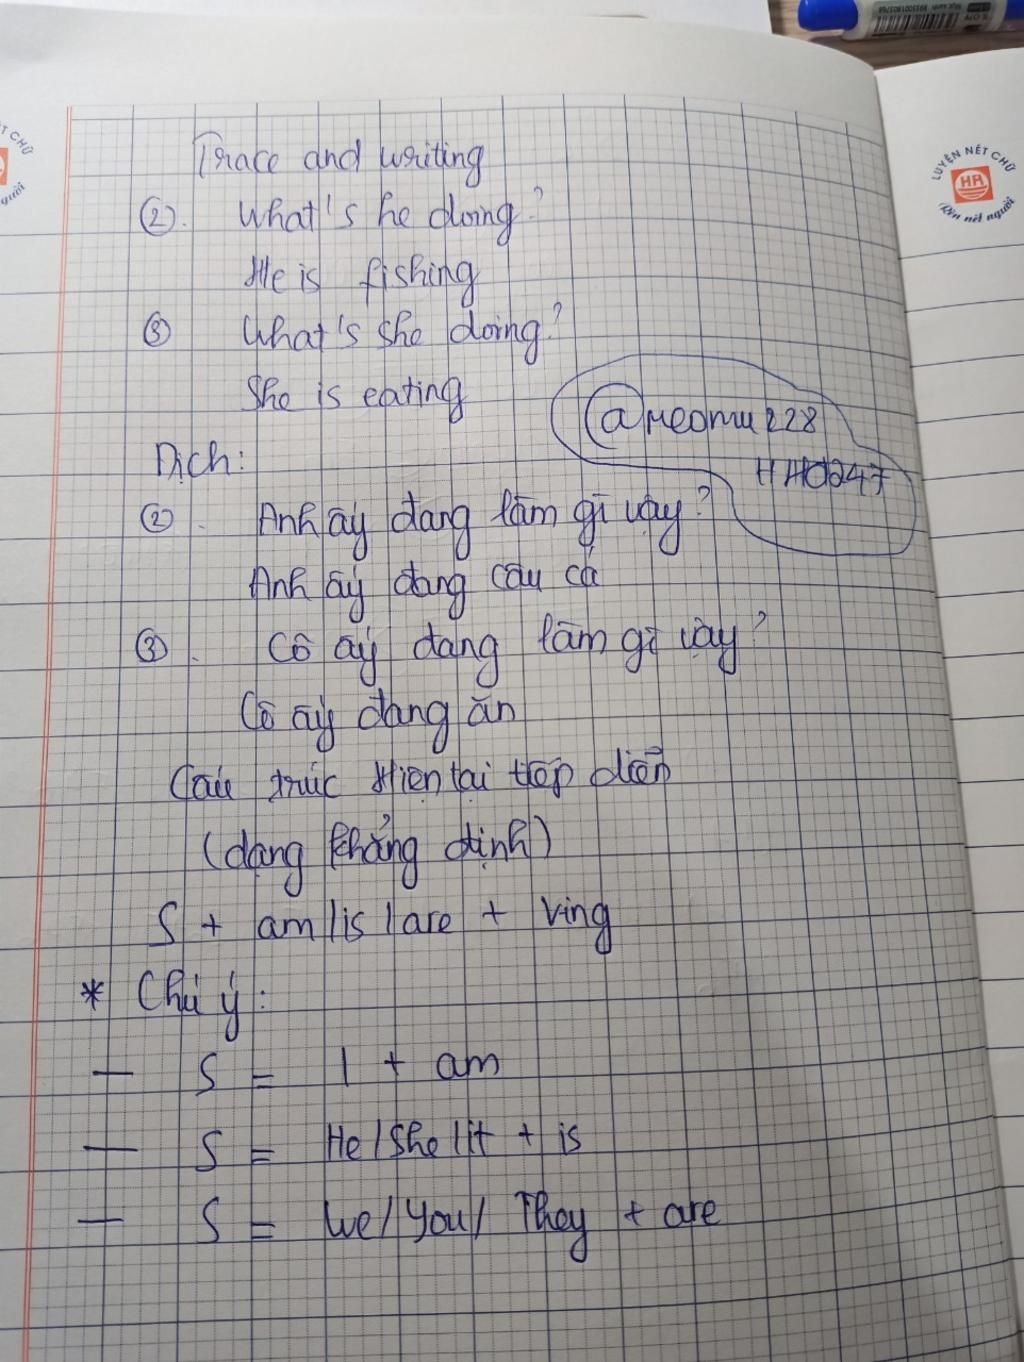 Trace and writing
②. What's he doing?
He is fishing
③ What's she doing?
She is eating
@meomu228
HHO247
Dịch:
②. Anh ấy đang làm gì vậy?
Anh ấy đang câu cá
③. Cô ấy đang làm gì vậy?
Cô ấy đang ăn
Cấu trúc Hiện tại tiếp diễn
(dạng khẳng định)
S + am/is/are + Ving
* Chú ý:
- S = I + am
- S = He/She/it + is
- S = We/You/They + are
LUYỆN NÉT CHỮ
HA
Rèn nết người
ẾT CHỮ
người